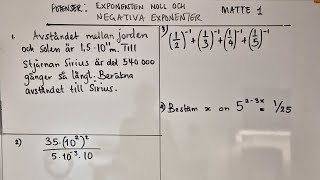 POTENSER: EXPONENTEN NOLL OCH
NEGATIVA EXPONENTER
MATTE 1
1. Avståndet mellan jorden
och solen är 1,5·10¹¹m. Till
Stjärnan Sirius är det 540 000
gånger så långt. Beräkna
avståndet till Sirius.
2) 35·(10²)² / 5·10⁻³·10
3) (1/2)⁻¹ + (1/3)⁻¹ + (1/4)⁻¹ + (1/5)⁻¹
Bestäm x om 5²⁻³ˣ = 1/25